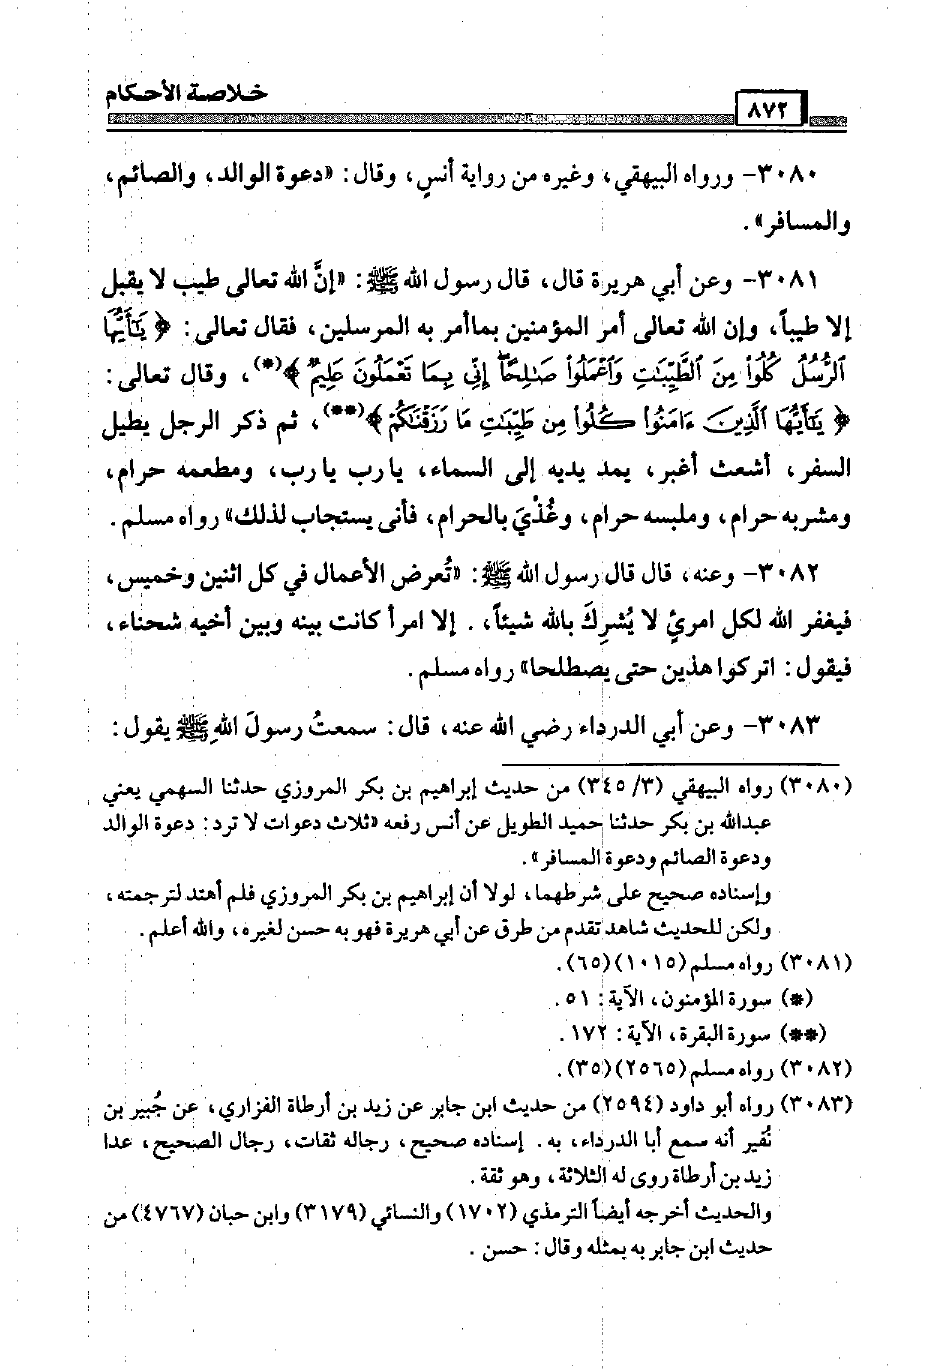 خلاصة الأحكام
٨٧٢
٣٠٨٠- ورواه البيهقي، وغيره من رواية أنسٍ، وقال: «دعوة الوالد، والصائم،
والمسافر».
٣٠٨١- وعن أبي هريرة قال، قال رسول الله ﷺ: «إنَّ الله تعالى طيب لا يقبل
إلا طيباً، وإن الله تعالى أمر المؤمنين بماأمر به المرسلين، فقال تعالى: ﴿ يَٰٓأَيُّهَا
ٱلرُّسُلُ كُلُوا۟ مِنَ ٱلطَّيِّبَٰتِ وَٱعْمَلُوا۟ صَٰلِحًا ۖ إِنِّى بِمَا تَعْمَلُونَ عَلِيمٌ ﴾(*)، وقال تعالى:
﴿ يَٰٓأَيُّهَا ٱلَّذِينَ ءَامَنُوا۟ كُلُوا۟ مِن طَيِّبَٰتِ مَا رَزَقْنَٰكُمْ ﴾(**)، ثم ذكر الرجل يطيل
السفر، أشعث أغبر، يمد يديه إلى السماء، يارب يارب، ومطعمه حرام،
ومشربه حرام، وملبسه حرام، وغُذْيَ بالحرام، فأنى يستجاب لذلك» رواه مسلم.
٣٠٨٢- وعنه، قال قال رسول الله ﷺ: «تُعرض الأعمال في كل اثنين وخميس،
فيغفر الله لكل امرئٍ لا يُشرِكَ بالله شيئاً،. إلا امرأ كانت بينه وبين أخيه شحناء،
فيقول: اتركوا هذين حتى يصطلحا» رواه مسلم.
٣٠٨٣- وعن أبي الدرداء رضي الله عنه، قال: سمعتُ رسولَ اللهِ ﷺ يقول:
(٣٠٨٠) رواه البيهقي (٣/ ٣٤٥) من حديث إبراهيم بن بكر المروزي حدثنا السهمي يعني
عبدالله بن بكر حدثنا حميد الطويل عن أنس رفعه «ثلاث دعوات لا ترد: دعوة الوالد
ودعوة الصائم ودعوة المسافر».
وإسناده صحيح على شرطهما، لولا أن إبراهيم بن بكر المروزي فلم أهتد لترجمته،
ولكن للحديث شاهد تقدم من طرق عن أبي هريرة فهو به حسن لغيره، والله أعلم.
(٣٠٨١) رواه مسلم (١٠١٥)(٦٥).
(*) سورة المؤمنون، الآية: ٥١.
(**) سورة البقرة، الآية: ١٧٢.
(٣٠٨٢) رواه مسلم (٢٥٦٥)(٣٥).
(٣٠٨٣) رواه أبو داود (٢٥٩٤) من حديث ابن جابر عن زيد بن أرطاة الفزاري، عن جُبير بن
نُفير أنه سمع أبا الدرداء، به. إسناده صحيح، رجاله ثقات، رجال الصحيح، عدا
زيد بن أرطاة روى له الثلاثة، وهو ثقة.
والحديث أخرجه أيضاً الترمذي (١٧٠٢) والنسائي (٣١٧٩) وابن حبان (٤٧٦٧) من
حديث ابن جابر به بمثله وقال: حسن.